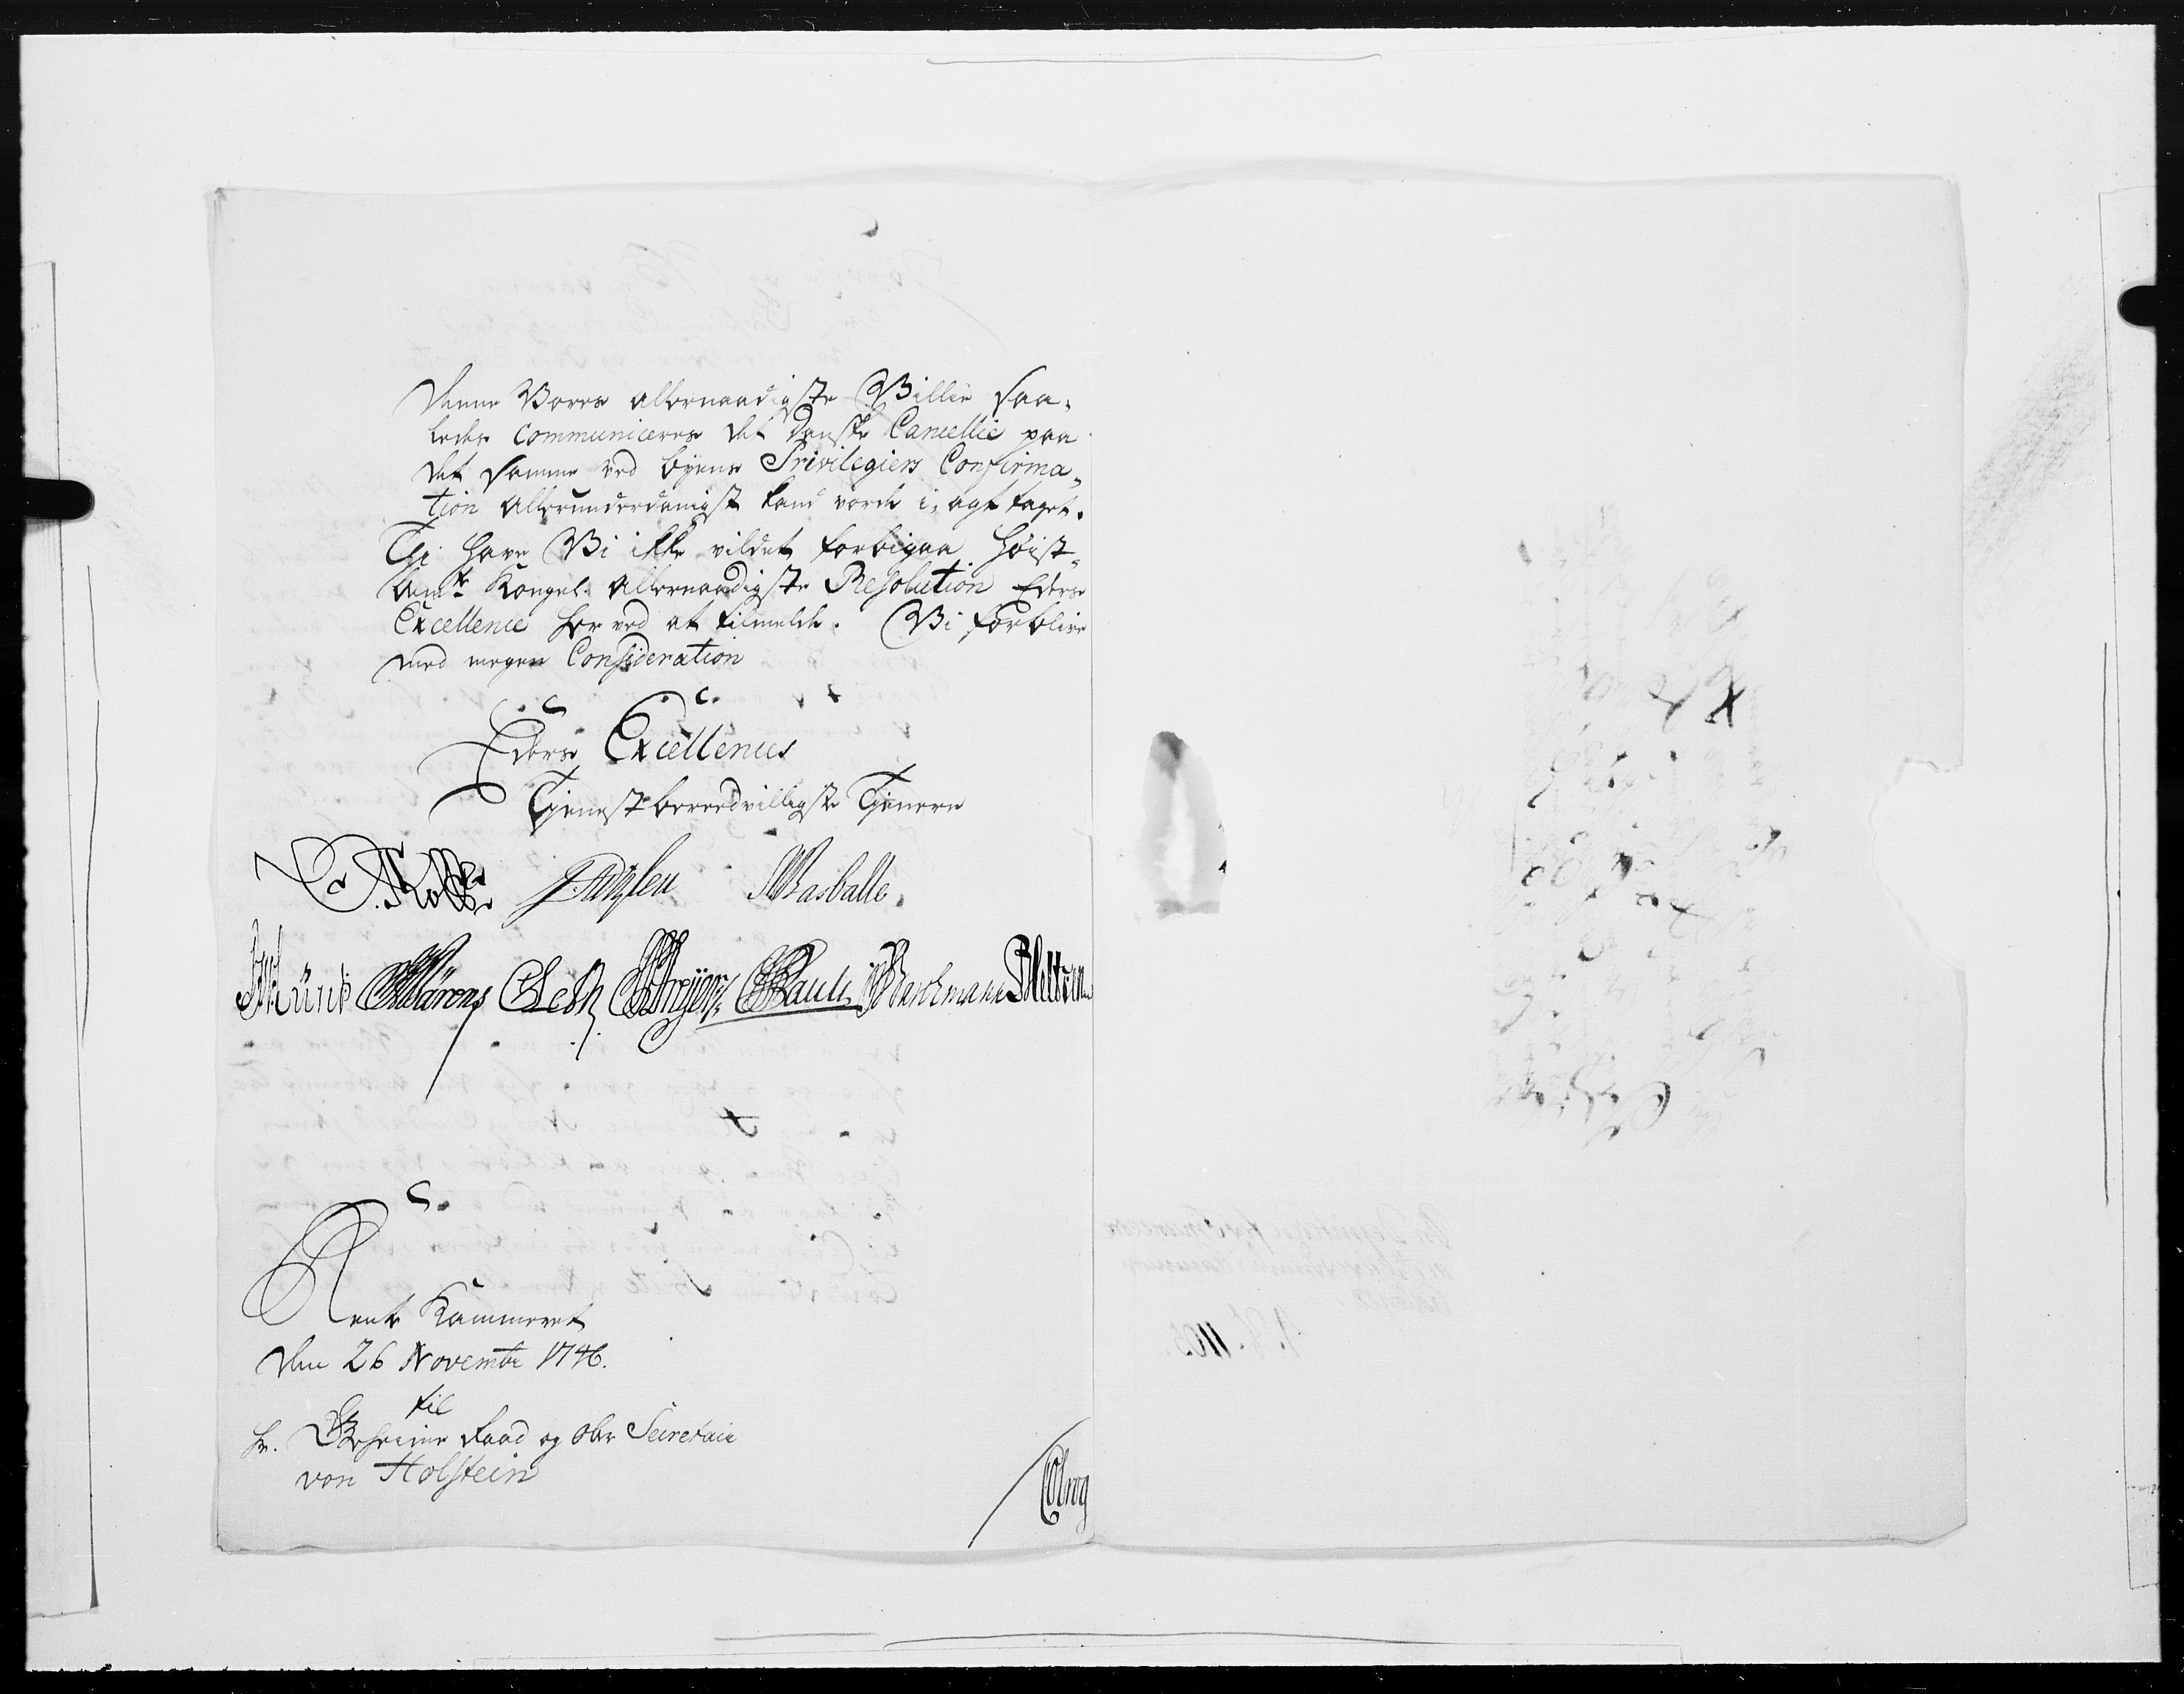 denne Vores allernaadigste Villie saa„
ledes communiceres det Danske Cancellie paa
det samme ved byens Privilegiers Confirma„
tion allerunderdanigst kand vorde i agt taget.
Thi have Vi ikke vildet forbigaa høist„
bemte Kongel: allernaadigste Resolution Eders
Excellence her ved at tilmelde. Vi forblive
med megen Consideration
Eders Excellences
Tienstbereedvilligste Tienere
Rasballe.
Leth Pauli
Rente Kammeret
den 26 Novembr 1746.
til
Hr. Geheime Raad og Ober Secretaire
von Holstein